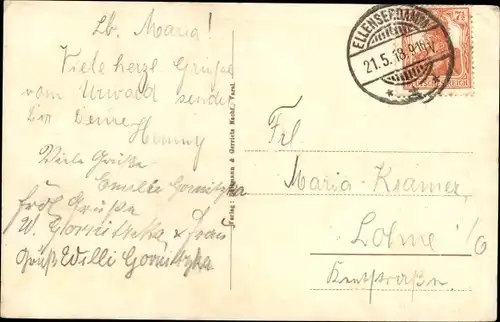 Lb. Maria!
Viele herzl. Grüße
vom Urwald sendet
Dir Deine
Henny
Viele Grüße
Emilli Gornitzka
frdl Grüße
W. Gornitzka & Frau
Gruß Willi Gornitzka
Verlag: & Gerriets Nachf., Varel.
ELLENSERDAMM
21.5.18. 9-10 V.
7½
REICH
Frl.
Maria Krämer
Lohne i/O